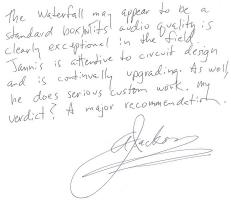 The Waterfall may appear to be a
standard box, but its' audio quality is
clearly exceptional in the field.
Jannis is attentive to circuit design
and is continually upgrading. As well,
he does serious custom work. My
verdict? A major recommendation.
Jackson